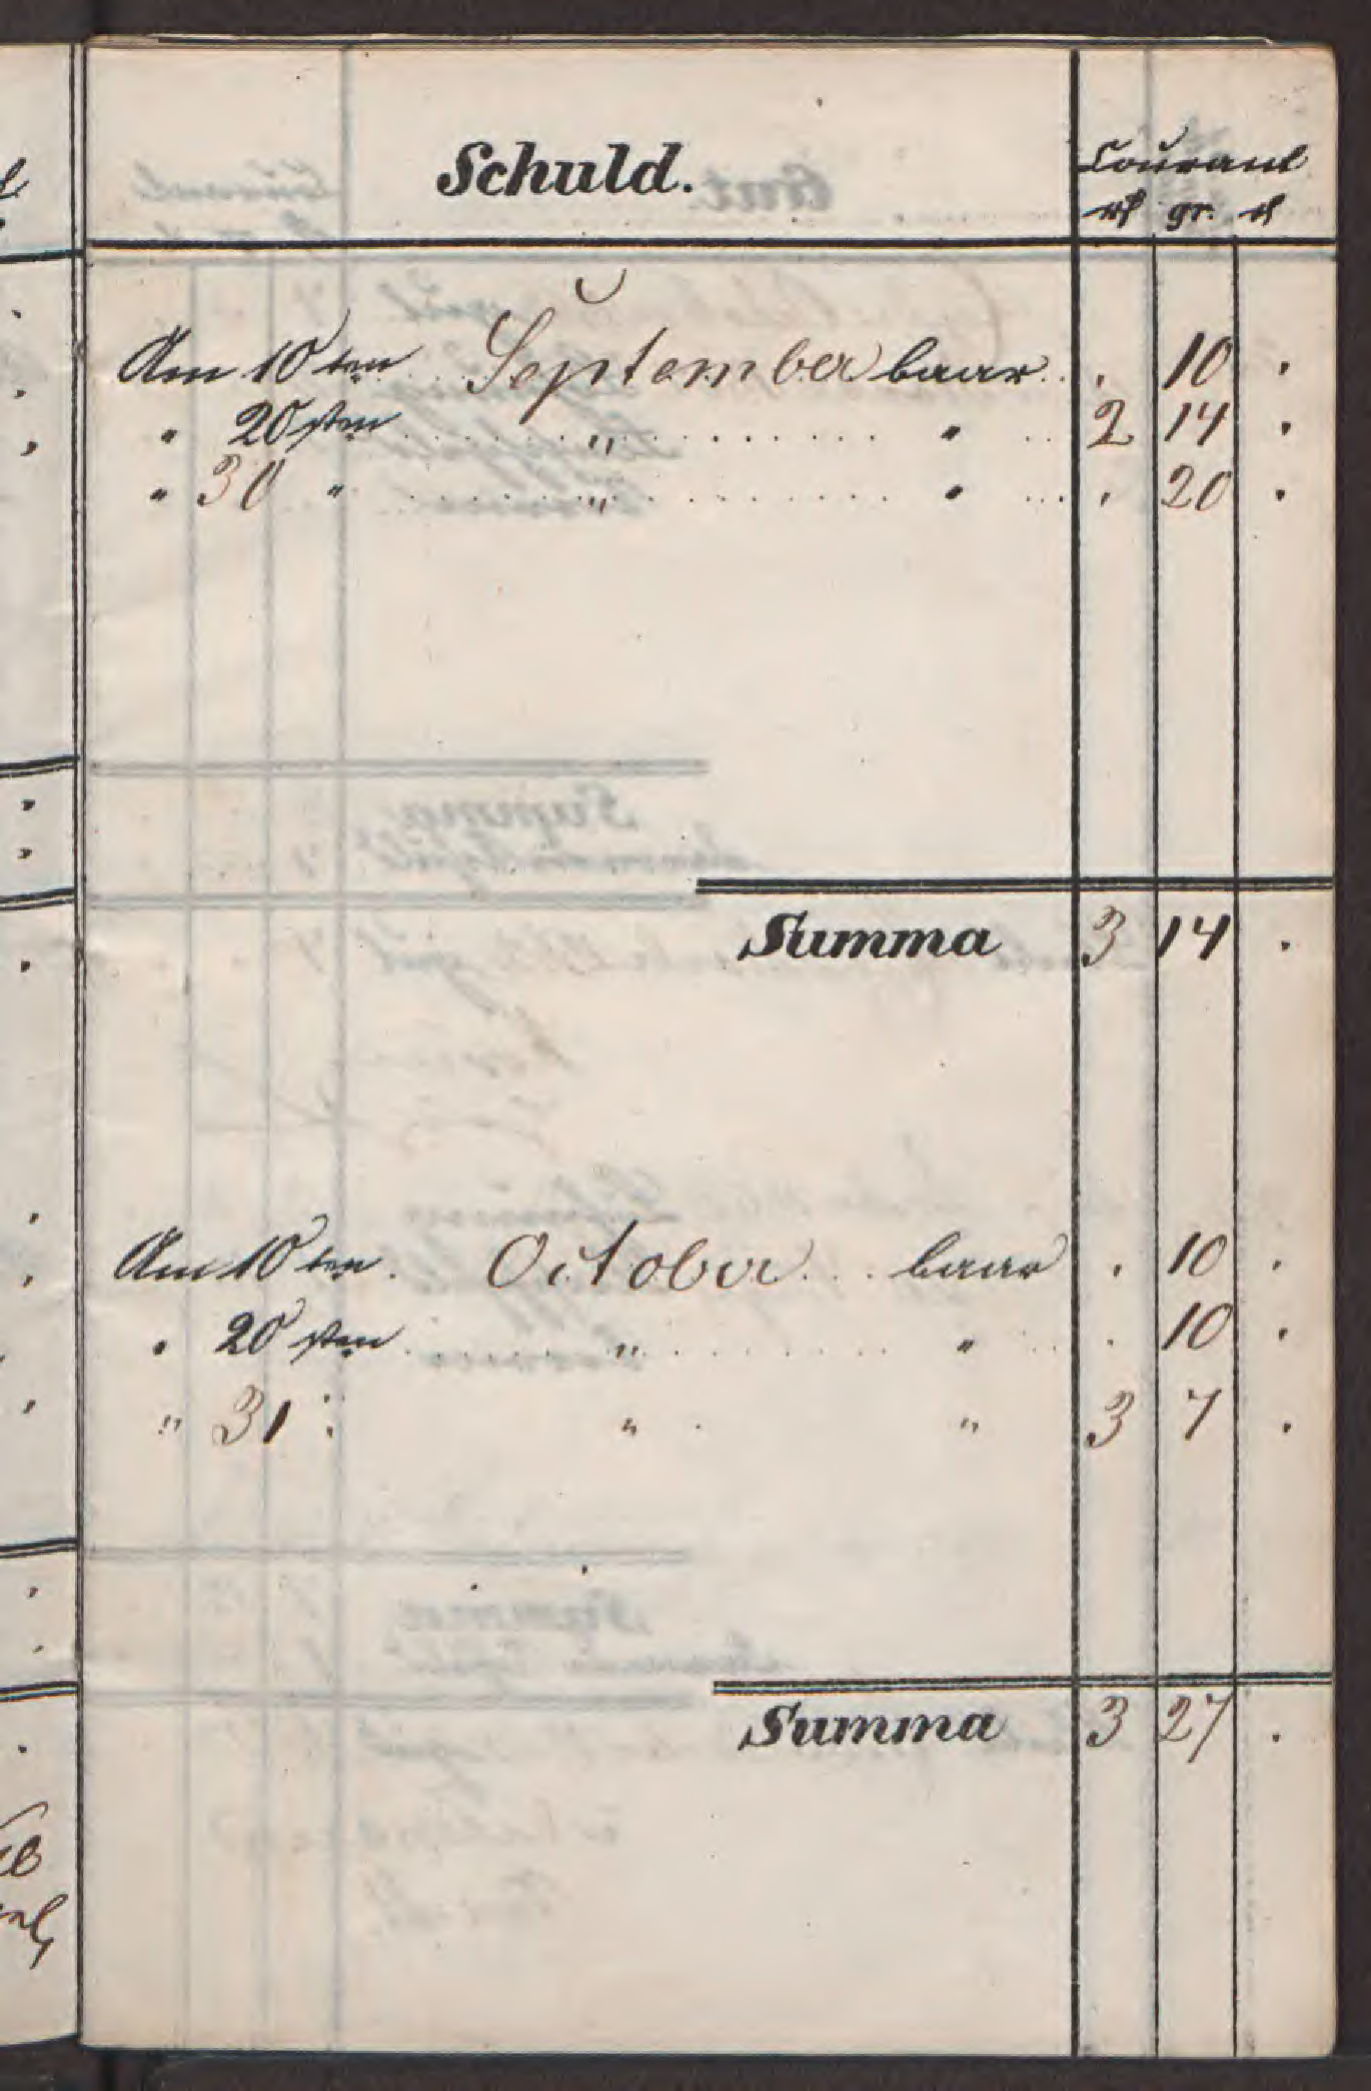 Schuld. Courant
rt gr. d
Am 10ten September baar . 10 .
" 20sten " " 2 14 .
" 30 " " " . 20 .
Summa 3 14 .
Am 10ten October baar . 10 .
" 20sten " " . 10 .
" 31 " " " 3 7 .
Summa 3 27 .